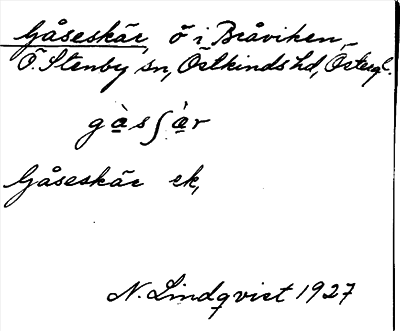 Gåseskär ö i Bråviken
Ö. Stenby sn, Östkinds hd, Östergl.
gà̱sʃà̱r
Gåseskär ek,
N. Lindqvist 1927